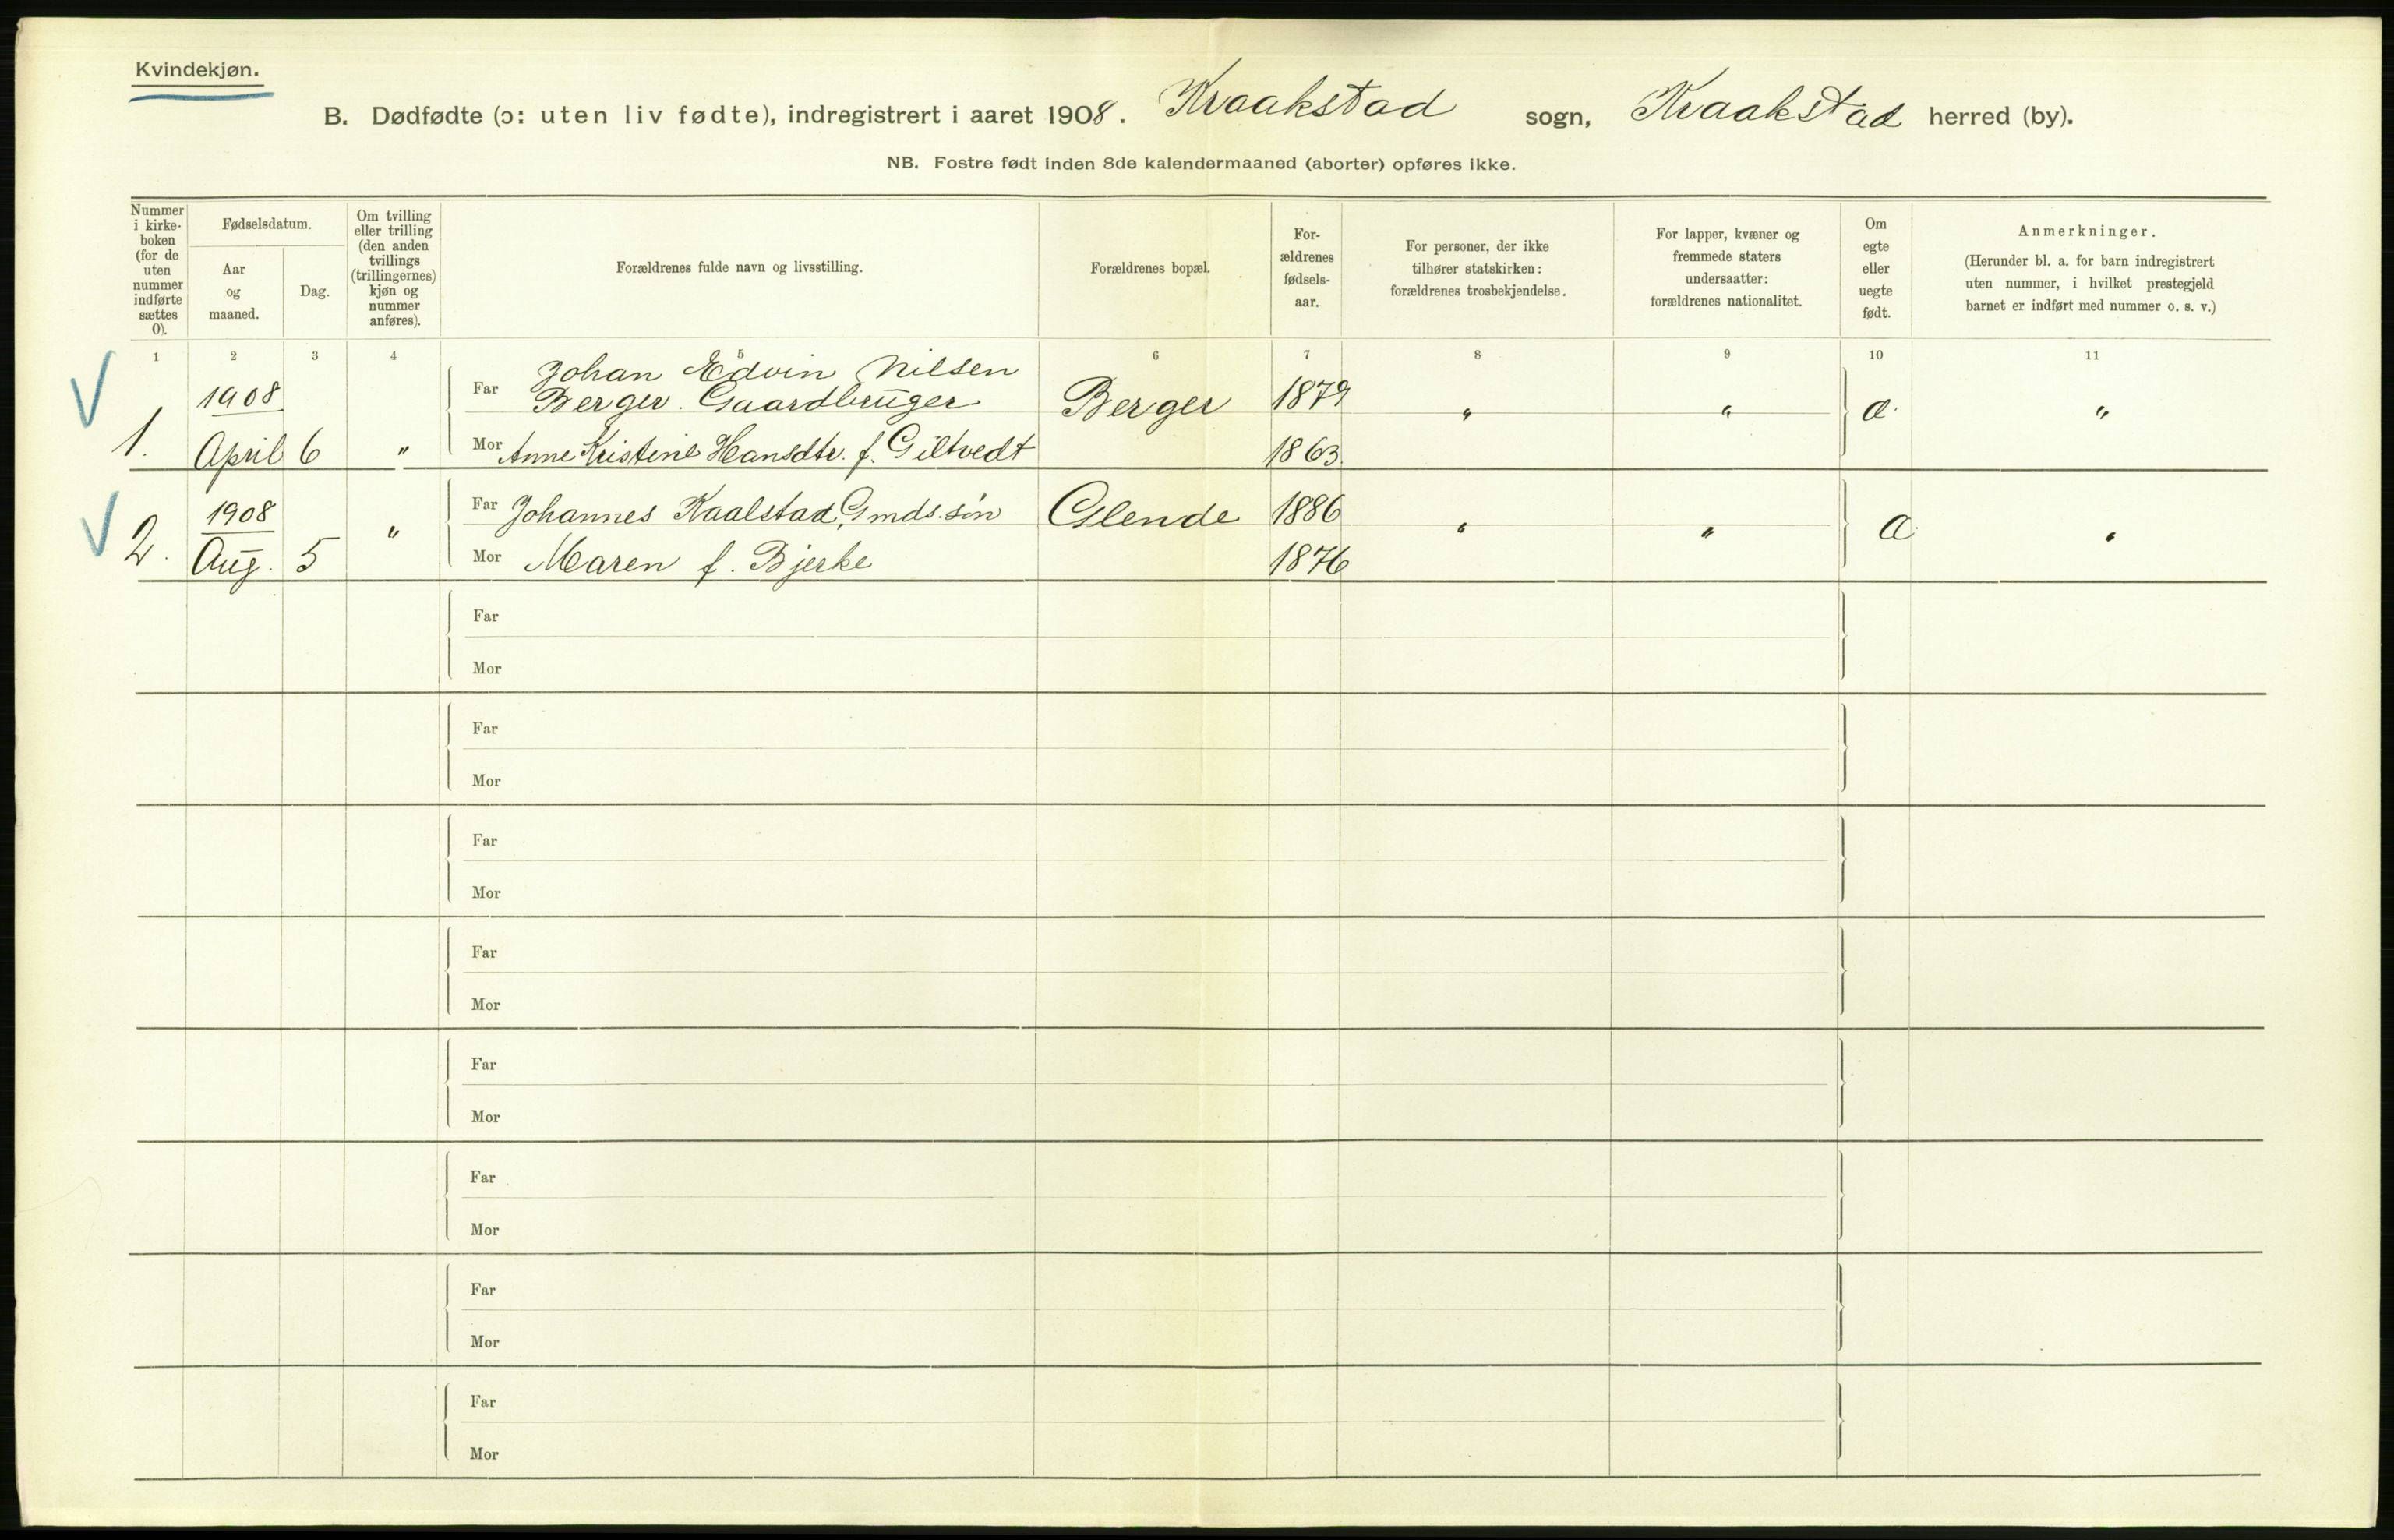 Kvindekjøn.
B. Dødfødte (ɔ: uten liv fødte), indregistrert i aaret 1908. Kraakstad sogn, Kraakstad herred (by).
NB. Fostre født inden 8de kalendermaaned (aborter) opføres ikke.
Nummer i kirke-boken (for de uten nummer indførte sættes 0).
Fødselsdatum.
Aar og maaned.
Dag.
Om tvilling eller trilling (den anden tvillings (trillingernes) kjøn og nummer anføres).
Forældrenes fulde navn og livsstilling.
Forældrenes bopæl.
For-ældrenes fødsels-aar.
For personer, der ikke tilhører statskirken: forældrenes trosbekjendelse.
For lapper, kvæner og fremmede staters undersaatter: forældrenes nationalitet.
Om egte eller uegte født.
Anmerkninger.
(Herunder bl. a. for barn indregistrert uten nummer, i hvilket prestegjeld barnet er indført med nummer o. s. v.)
1 2 3 4 5 6 7 8 9 10 11
Johan Edvin Nilsen
1908 Far Berger. Gaardbruger Berger 1879 " " a. "
1. April 6 " Mor Anne Kristine Hansdtr. f. Giltvedt 1863.
1908 " Far Johannes Kaalstad, Gmds.søn Glende 1886 " " a "
2. Aug. 5 Mor Maren f. Bjerke 1876
Far
Mor
Far
Mor
Far
Mor
Far
Mor
Far
Mor
Far
Mor
Far
Mor
Far
Mor